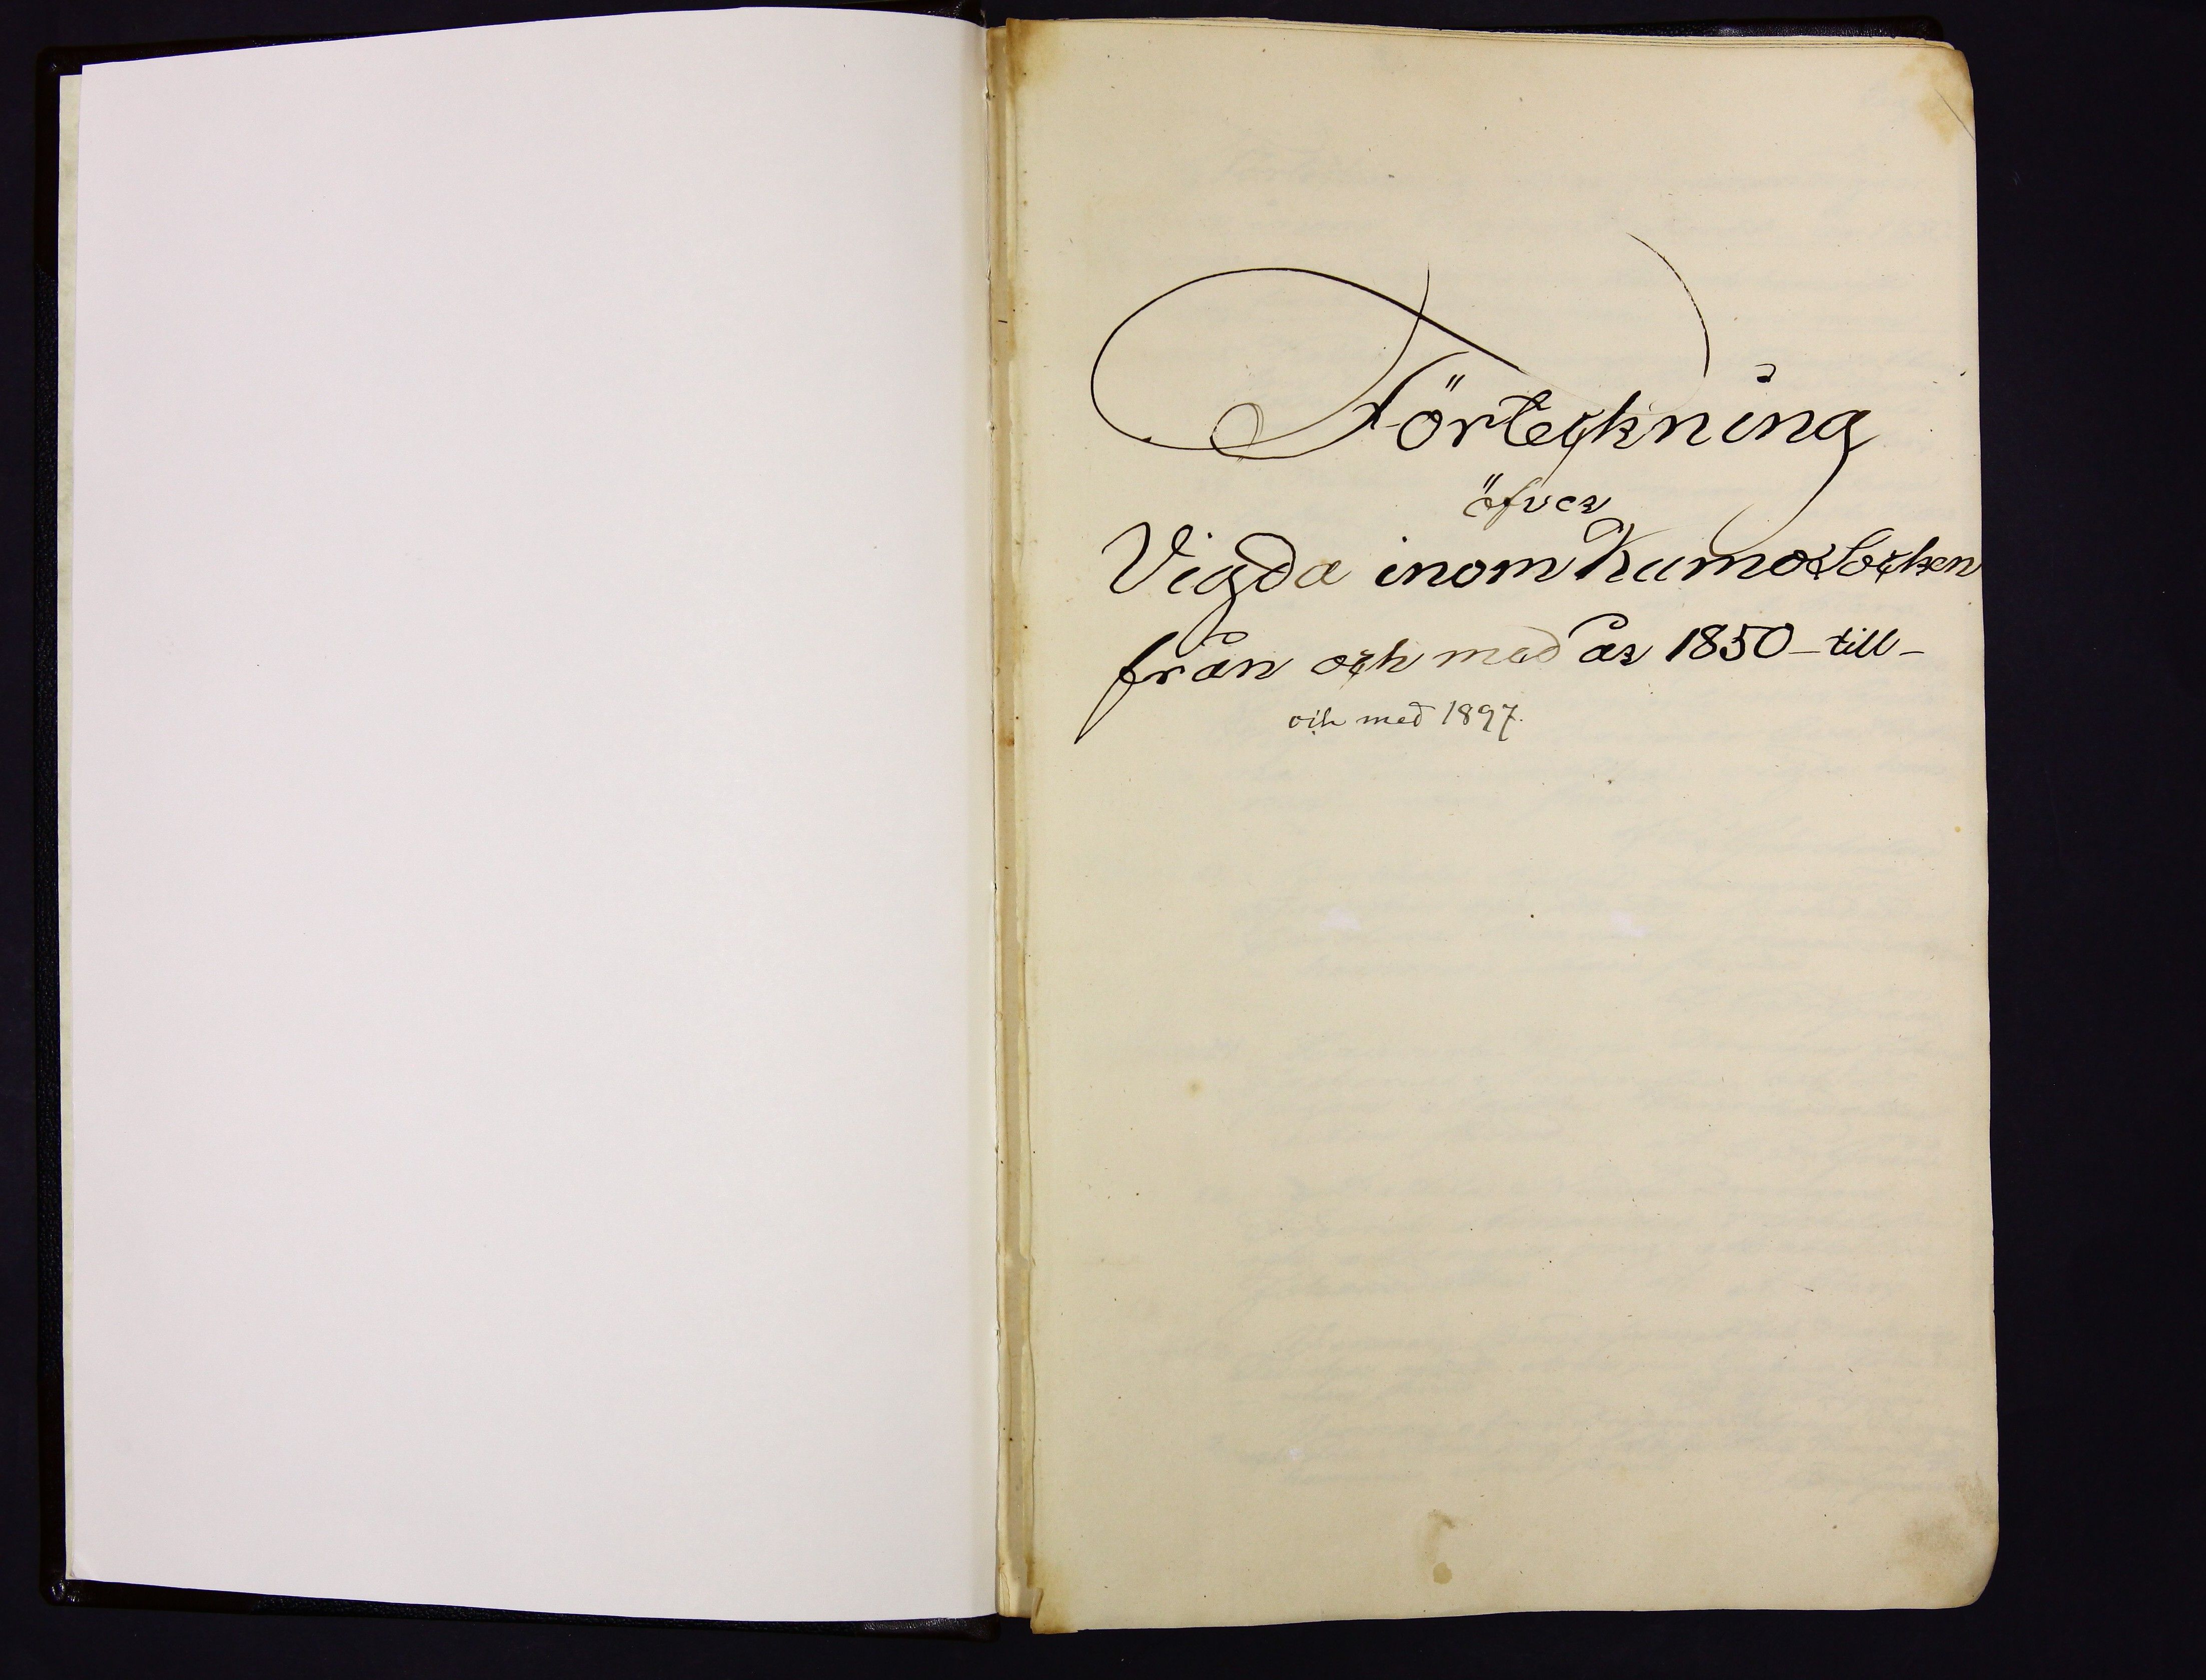 Förteckning
öfver
Vigda inom Kumo Socken
från och med år 1850 - till -
och med 1897.